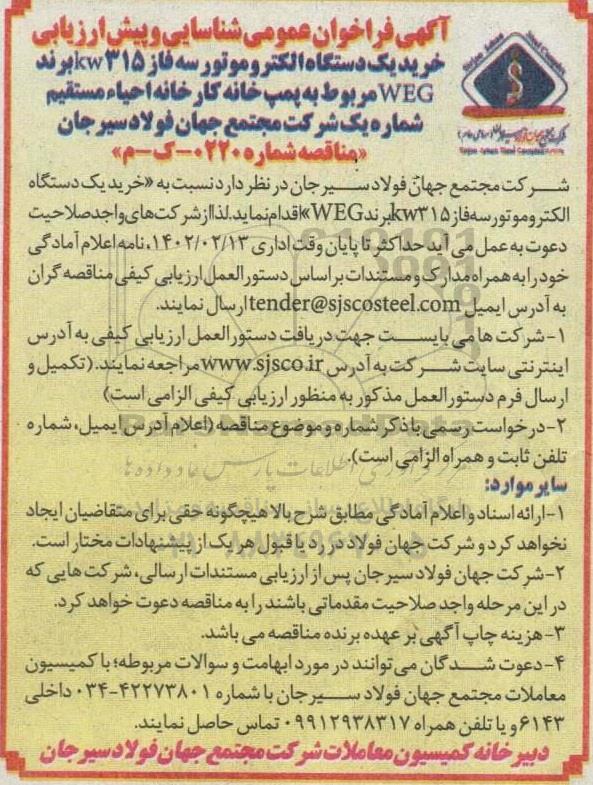 آگهی فراخوان عمومی شناسایی و پیش ارزیابی
خرید یک دستگاه الکتروموتور سه فاز kw۳۱۵ برند
WEG مربوط به پمپ خانه کارخانه احیاء مستقیم
شماره یک شرکت مجتمع جهان فولاد سیرجان
«مناقصه شماره ۰۲۲۰-ک-م»
شرکت مجتمع جهان فولاد سیرجان در نظر دارد نسبت به «خرید یک دستگاه
الکتروموتور سه فاز kw۳۱۵ برند WEG» اقدام نماید. لذا از شرکت های واجد صلاحیت
دعوت به عمل می آید حداکثر تا پایان وقت اداری ۱۴۰۲/۰۲/۱۳، نامه اعلام آمادگی
خود را به همراه مدارک و مستندات بر اساس دستورالعمل ارزیابی کیفی مناقصه گران
به آدرس ایمیل tender@sjscosteel.com ارسال نمایند.
۱-شرکت ها می بایست جهت دریافت دستورالعمل ارزیابی کیفی به آدرس
اینترنتی سایت شرکت به آدرس www.sjsco.ir مراجعه نمایند. (تکمیل و
ارسال فرم دستورالعمل مذکور به منظور ارزیابی کیفی الزامی است)
۲-درخواست رسمی با ذکر شماره و موضوع مناقصه (اعلام آدرس ایمیل، شماره
تلفن ثابت و همراه الزامی است).
سایر موارد:
۱-ارائه اسناد و اعلام آمادگی مطابق شرح بالا هیچگونه حقی برای متقاضیان ایجاد
نخواهد کرد و شرکت جهان فولاد در رد یا قبول هر یک از پیشنهادات مختار است.
۲-شرکت جهان فولاد سیرجان پس از ارزیابی مستندات ارسالی، شرکت هایی که
در این مرحله واجد صلاحیت مقدماتی باشند را به مناقصه دعوت خواهد کرد.
۳-هزینه چاپ آگهی بر عهده برنده مناقصه می باشد.
۴-دعوت شدگان می توانند در مورد ابهامت و سوالات مربوطه؛ با کمیسیون
معاملات مجتمع جهان فولاد سیرجان با شماره ۴۲۲۷۳۸۰۱-۰۳۴ داخلی
۶۱۴۳ و یا تلفن همراه ۰۹۹۱۲۹۳۸۳۱۷ تماس حاصل نمایند.
دبیرخانه کمیسیون معاملات شرکت مجتمع جهان فولاد سیرجان